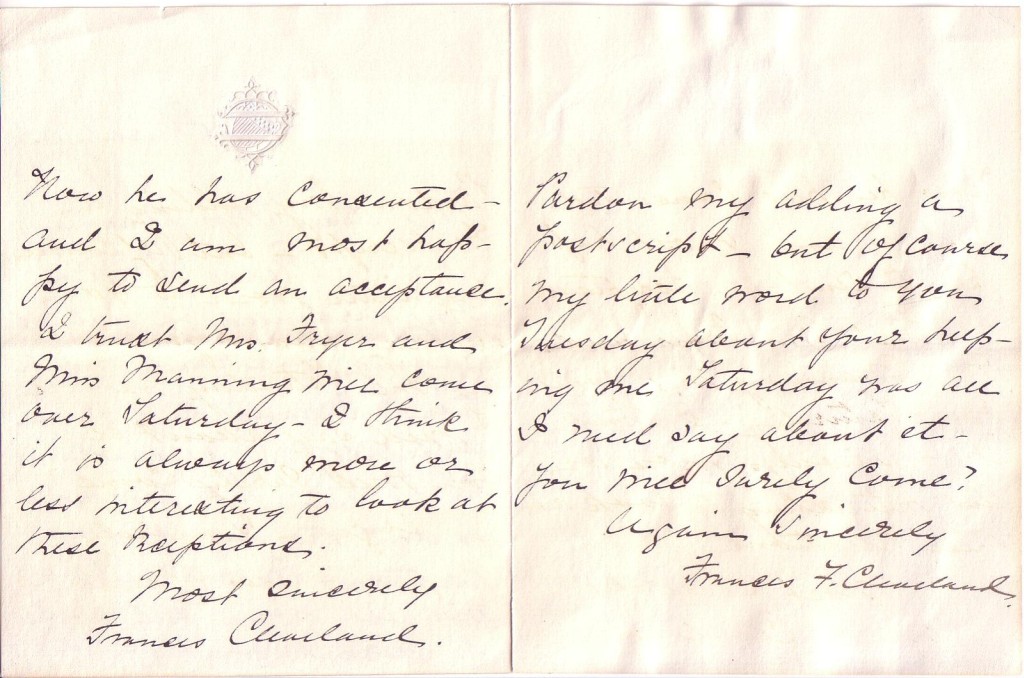 Now he has consented -
and I am most hap-
py to send an acceptance.
I trust Mrs. Fryer and
Miss Manning will come
over Saturday - I think
it is always more or
less interesting to look at
these receptions.
Most sincerely
Frances Cleveland.
Pardon my adding a
postscript - but of course
my little word to you
Tuesday about your help-
ing me Saturday was all
I need say about it -
You will surely come?
Again Sincerely
Frances F. Cleveland.